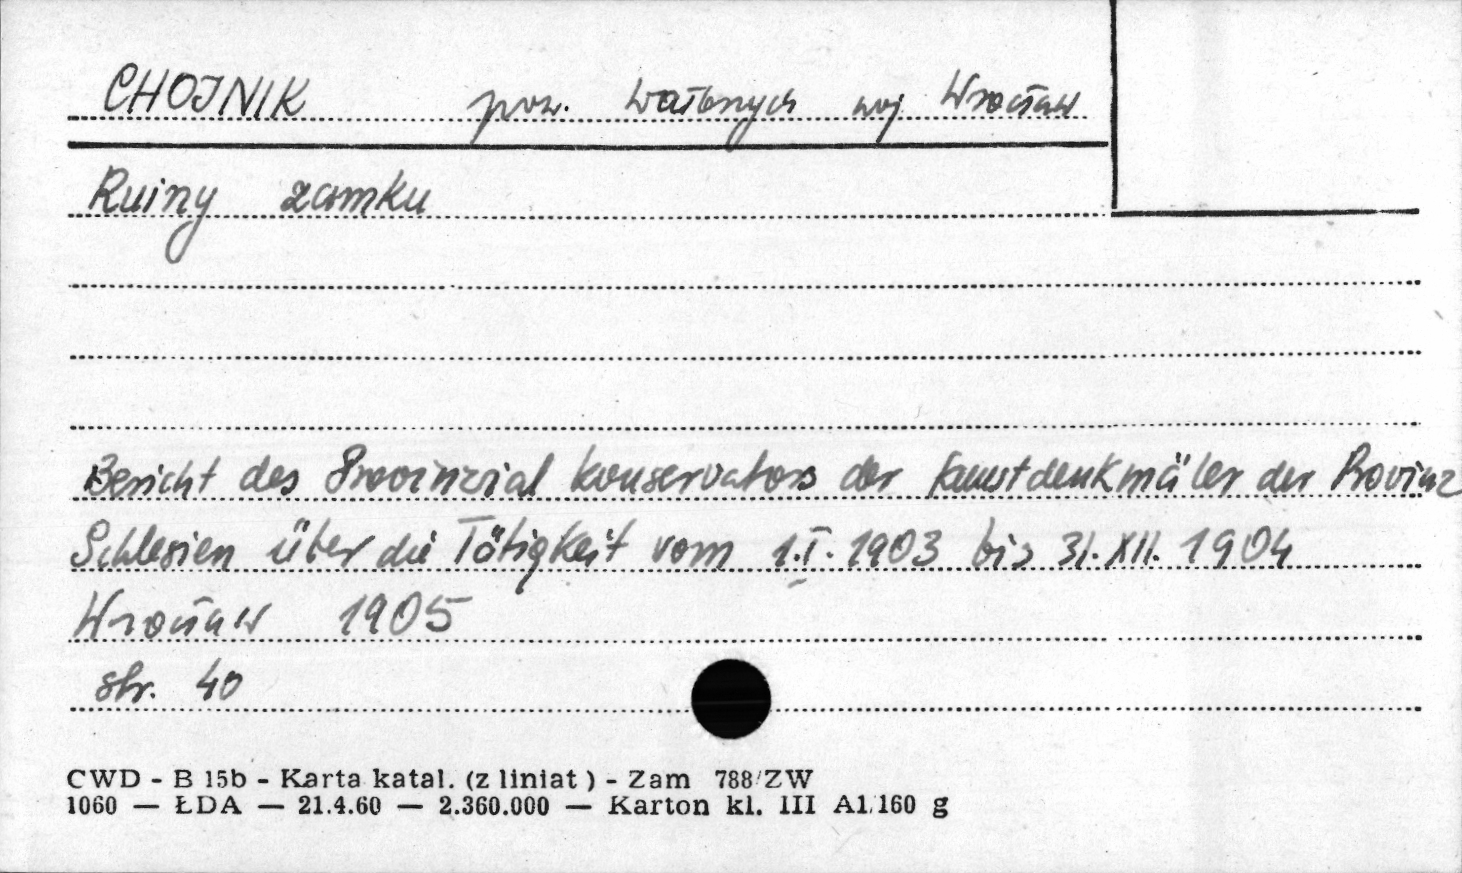 CHOJNIK pow. Wałbrzych woj Wrocław
Ruiny zamku
Bericht des Provinzial konservators der Kunstdenkmäler der Provinz
Schlesien über die Tätigkeit vom 1.I.1903 bis 31.XII.1904
Wrocław 1905
str. 40
CWD - B 15b - Karta katal. (z liniat ) - Zam 788/ZW
1060 — ŁDA — 21.4.60 — 2.360.000 — Karton kl. III A1/160 g